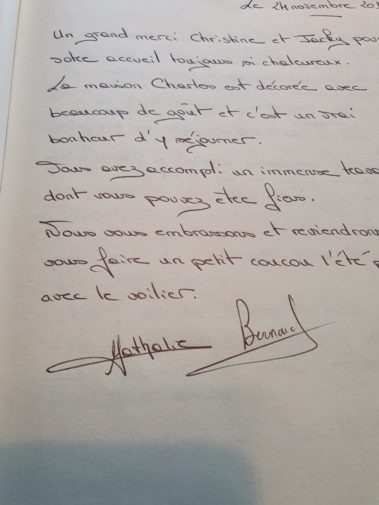 Le 24 novembre 20
Un grand merci Christine et Jacky pou
votre accueil toujours si chaleureux.
La maison Charlos est décorée avec
beaucoup de goût et c'est un vrai
bonheur d'y séjourner.
Vous avez accompli un immense trava
dont vous pouvez être fiers.
Nous vous embrassons et reviendrons
vous faire un petit coucou l'été p
avec le voilier.
Nathalie Bernard